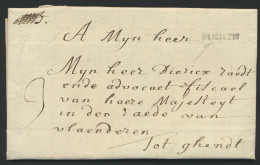 A Mijn heer
Mijn heer Diericx raedt
ende advocaet fiscael
van haere Majesteijt
in den Raede van
vlaenderen
Tot ghendt